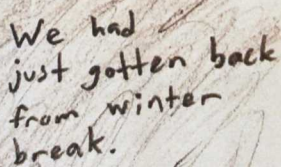 We had
just gotten back
from winter
break.